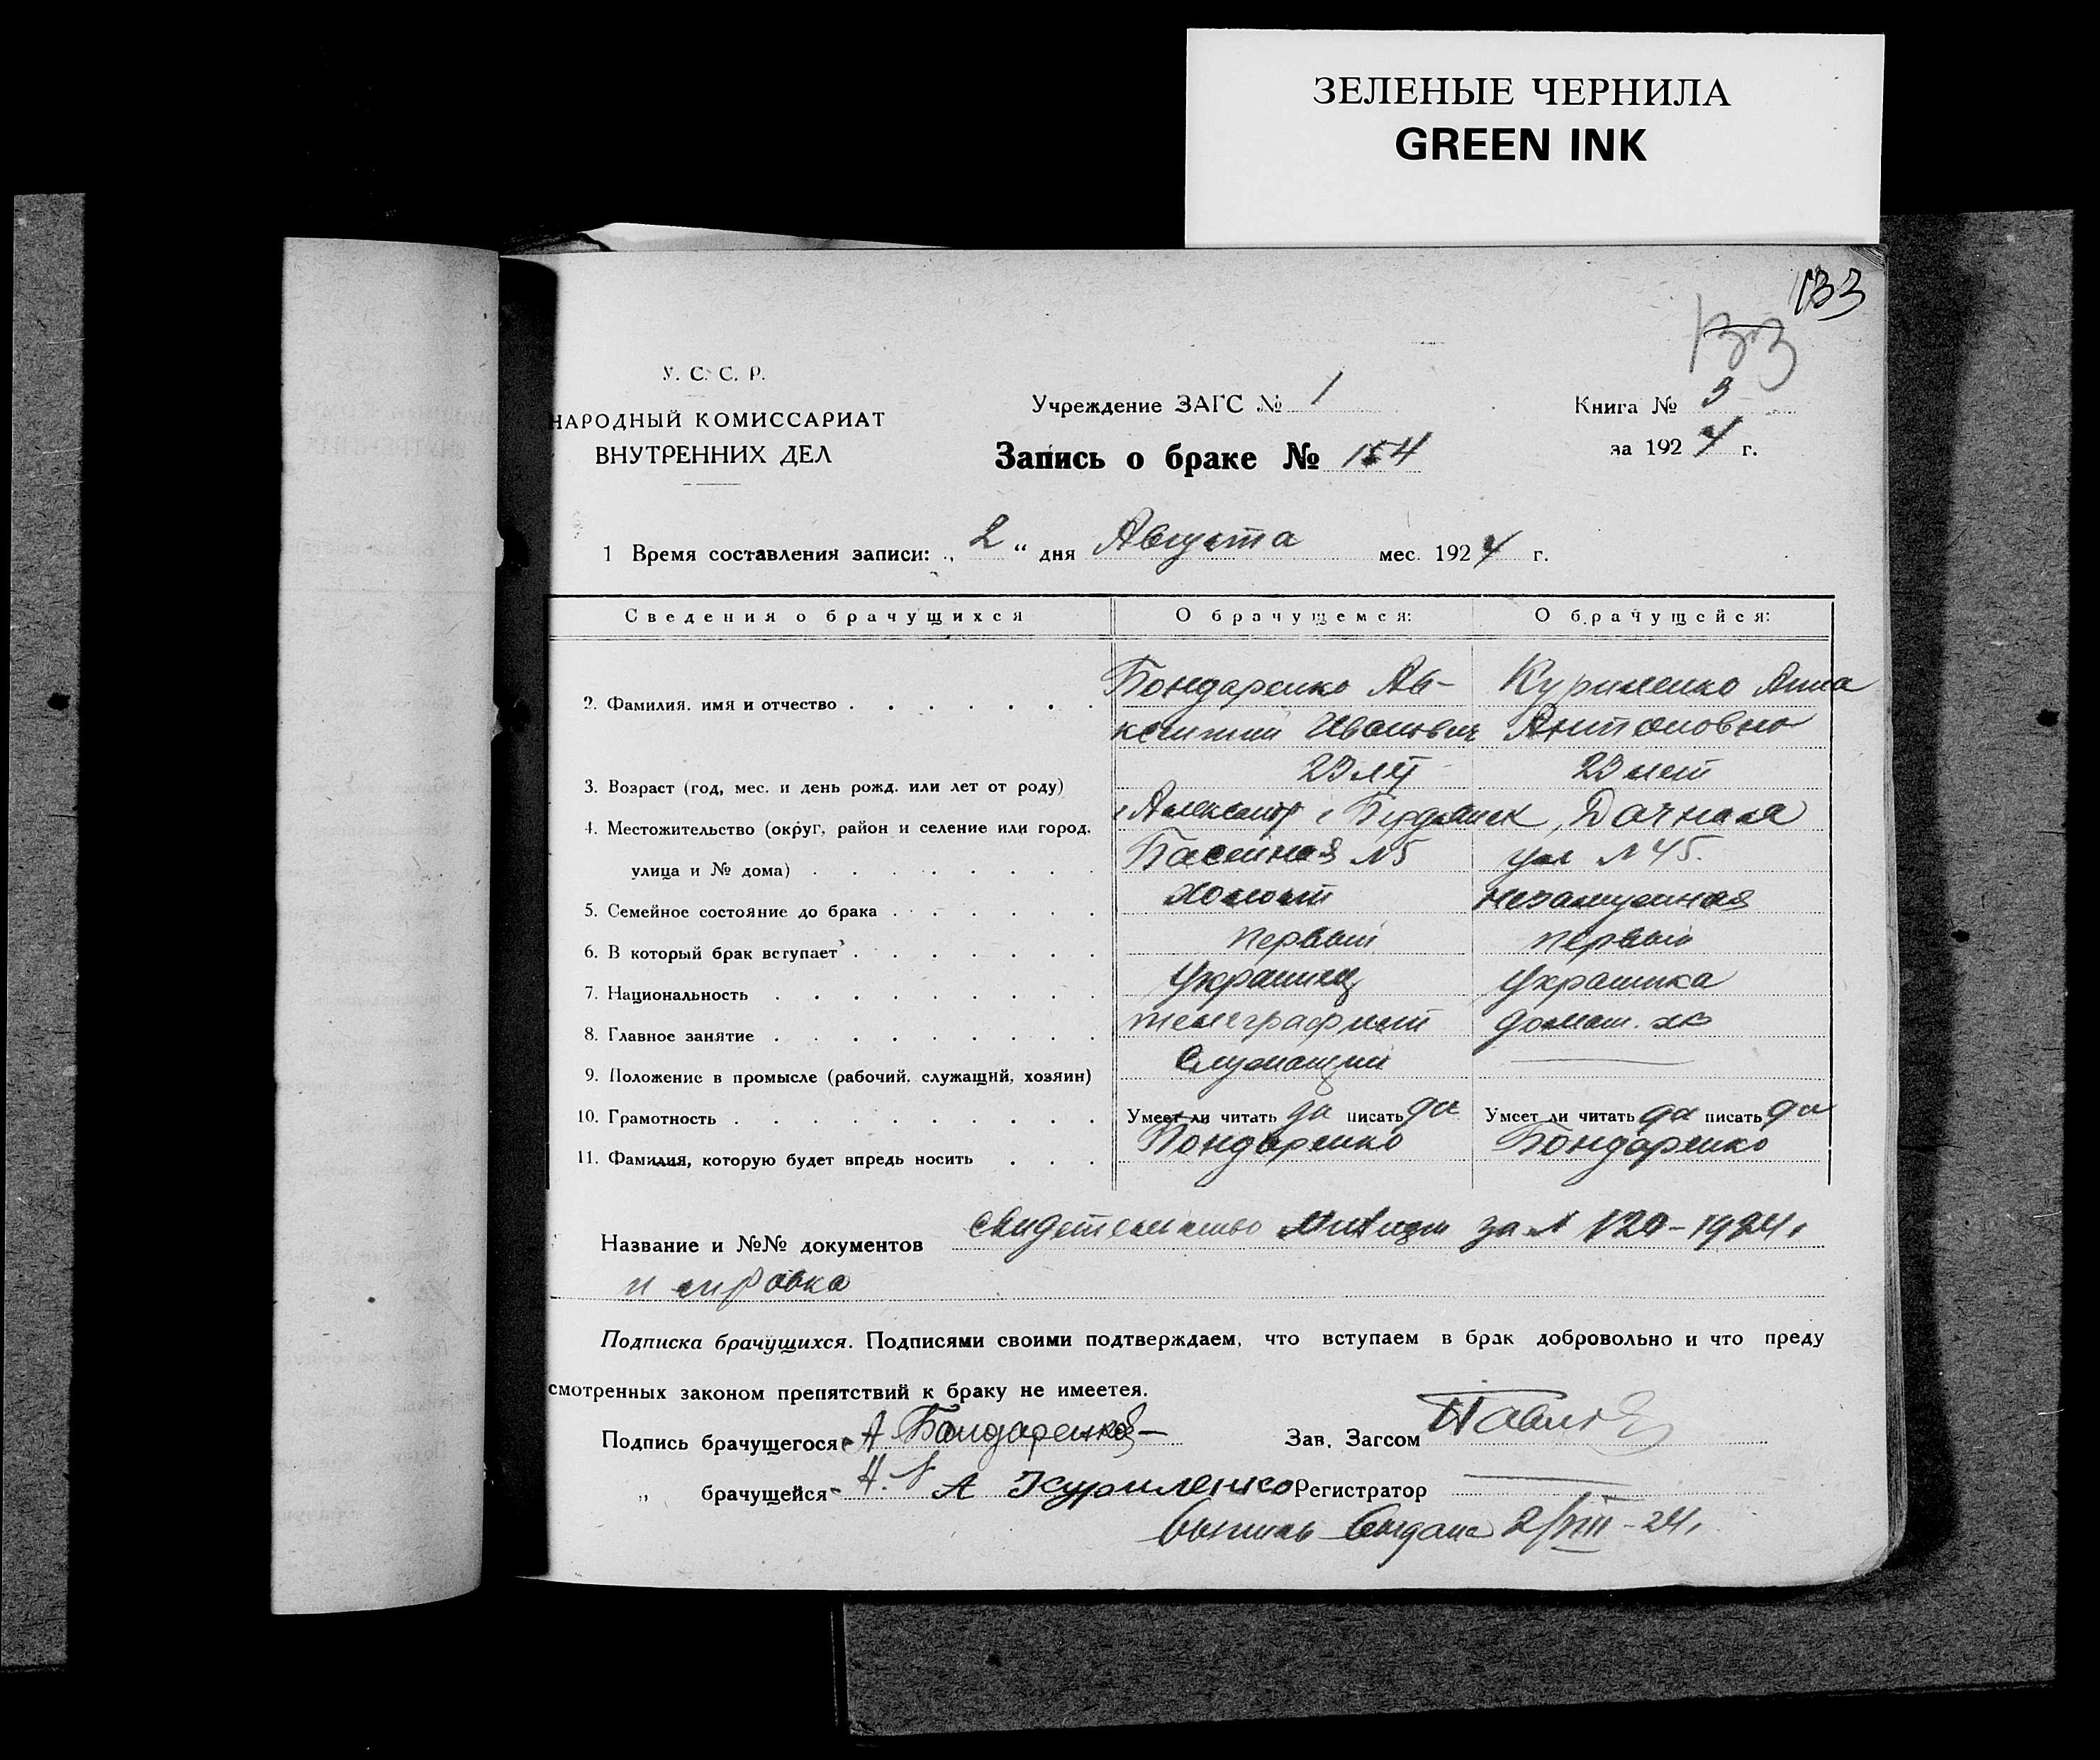 ЗЕЛЕНЫЕ ЧЕРНИЛА
GREEN INK
133
133
У. С. С. Р.
НАРОДНЫЙ КОМИССАРИАТ
ВНУТРЕННИХ ДЕЛ
Учреждение ЗАГС № 1
Запись о браке № 154
Книга № 3
за 1924 г.
1 Время составления записи: „2“ дня Августа мес. 1924 г.
Сведения о брачущихся О брачущемся: О брачущейся:
2. Фамилия, имя и отчество Бондаренко Ав- Куриленко Анна
Иванович Антоновна
3. Возраст (год, мес. и день рожд. или лет от роду) 23 лет 23 лет
4. Местожительство (округ, район и селение или город, г Александр г Бердянск, Дачная
улица и № дома) Басейная №5 ул №45.
5. Семейное состояние до брака холост незамужная
6. В который брак вступает первый первый
7. Национальность Украинец Украинка
8. Главное занятие телеграфист домаш. хоз
9. Положение в промысле (рабочий, служащий, хозяин) Служащий
10. Грамотность Умеет ли читать да писать да Умеет ли читать да писать да
11. Фамилия, которую будет впредь носить Бондаренко Бондаренко
Название и №№ документов свидетельство за № 120-1924г
и справка
Подписка брачущихся. Подписями своими подтверждаем, что вступаем в брак добровольно и что преду
смотренных законом препятствий к браку не имеется.
Подпись брачущегося А Бондаренко Зав. Загсом
„ брачущейся А Куриленко Регистратор
выпись выдана 2/VIII-24г